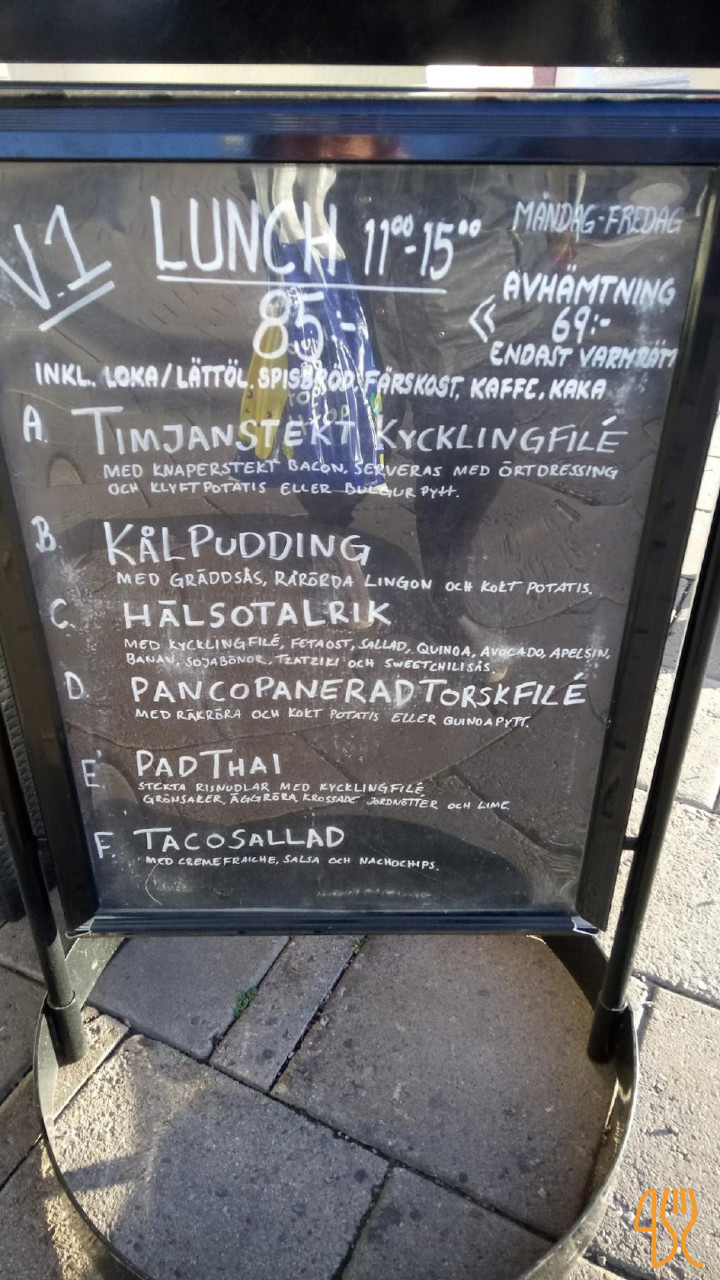 V.1
LUNCH 11⁰⁰-15⁰⁰
MÅNDAG-FREDAG
85:-
AVHÄMTNING
69:-
ENDAST VARMRÄTT
INKL. LOKA/LÄTTÖL, SPISBRÖD, FÄRSKOST, KAFFE, KAKA
A. TIMJANSTEKT KYCKLINGFILÉ
MED KNAPERSTEKT BACON, SERVERAS MED ÖRTDRESSING
OCH KLYFTPOTATIS ELLER BULGUR PYTT.
B. KÅLPUDDING
MED GRÄDDSÅS, RÅRÖRDA LINGON OCH KOKT POTATIS.
C. HÄLSOTALRIK
MED KYCKLINGFILÉ, FETAOST, SALLAD, QUINOA, AVOCADO, APELSIN,
BANAN, SOJABÖNOR, TZATZIKI OCH SWEETCHILISÅS.
D. PANCOPANERAD TORSKFILÉ
MED RÄKRÖRA OCH KOKT POTATIS ELLER QUINOAPYTT.
E. PAD THAI
STEKTA RISNUDLAR MED KYCKLINGFILÉ
GRÖNSAKER, ÄGGRÖRA, KROSSADE JORDNÖTTER OCH LIME
F. TACOSALLAD
MED CREMEFRAICHE, SALSA OCH NACHOCHIPS.